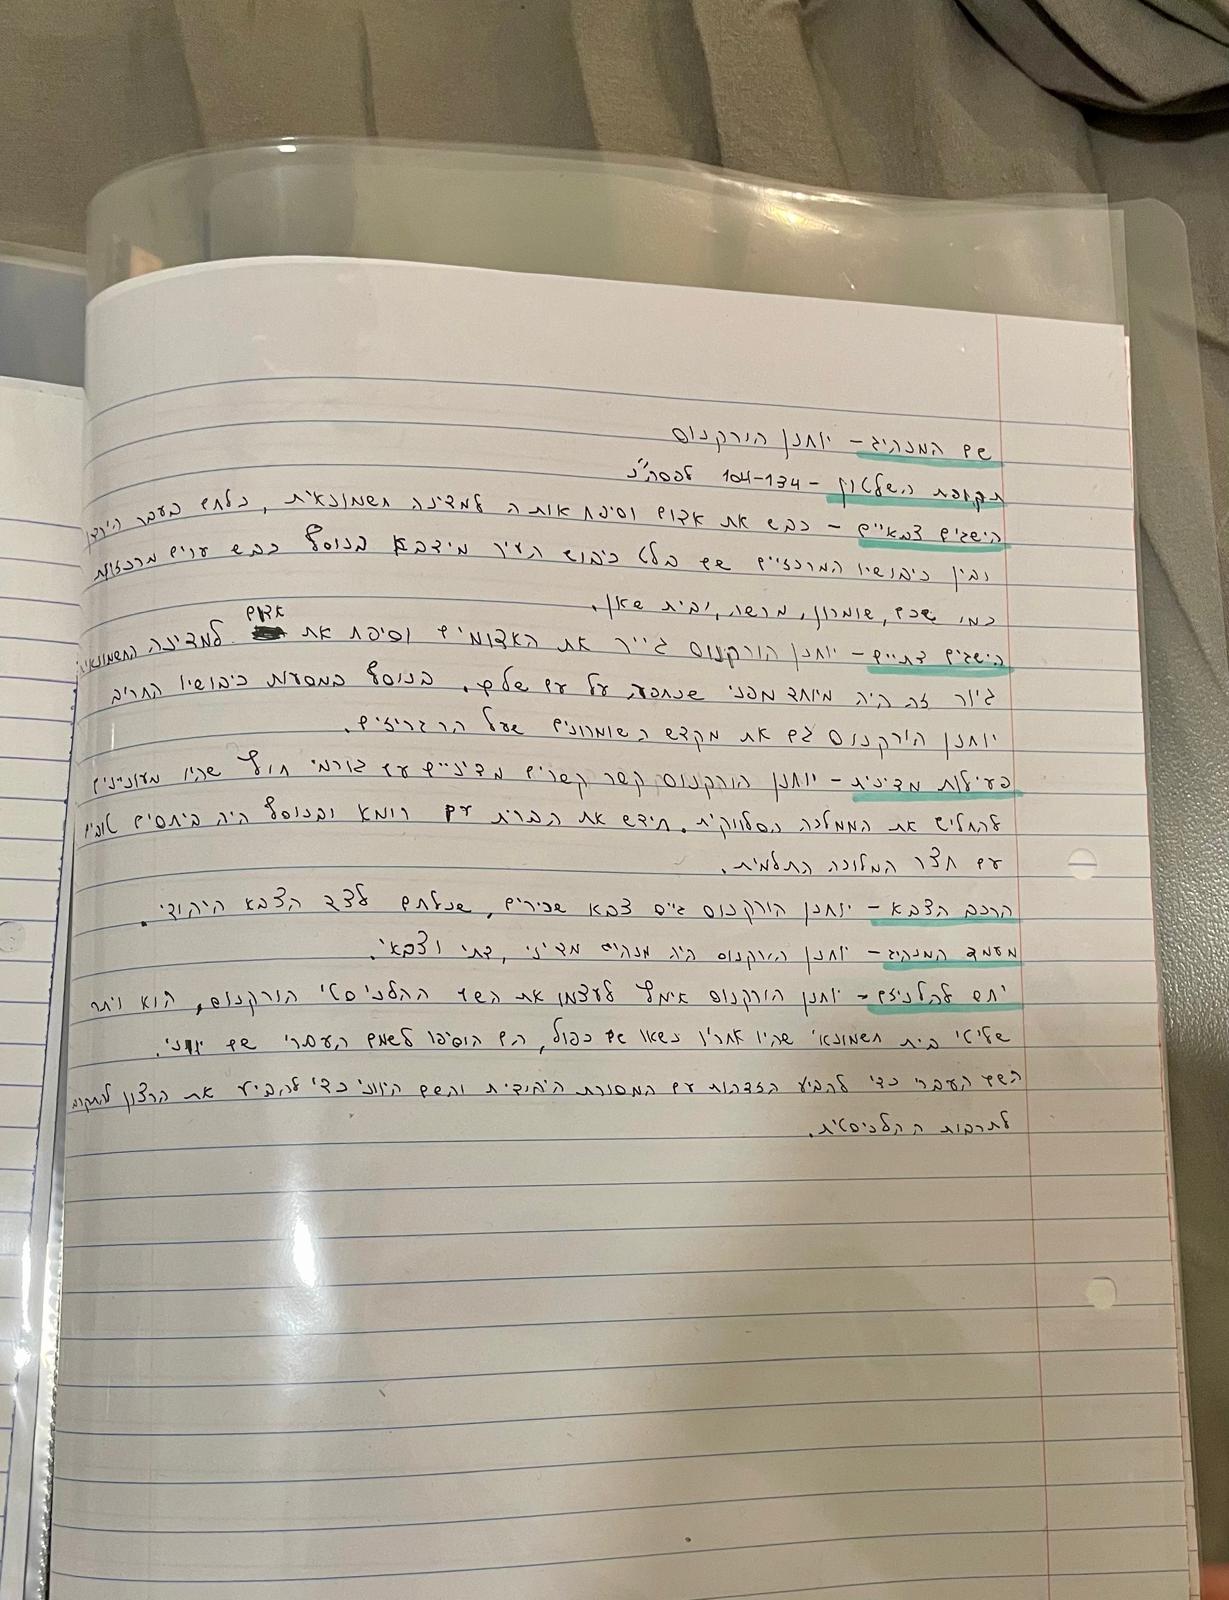 שם המנהיג- יוחנן הורקנוס
תקופת השלטון - 104-134 לפסה"נ
הישגים צבאיים - כבש את אדום וסיפח אותה למדינה חשמונאית, נלחם בעבר הירדן
ובין כיבושיו המרכזיים שם בלט כיבוש העיר מידבא בנוסף כבש ערים מרכזיות
כמו שכם, שומרון, מרשה, ובית שאן.
הישגים דתיים- יוחנן הורקנוס גייר את האדומים וסיפח את אדום למדינה החשמונאית
גיור זה היה מיוחד מפני שנכפה על עם שלם. בנוסף במסעות כיבושיו החריב
יוחנן הירקנוס גם את מקדש השומרונים שעל הר גריזים.
פעילות מדינית- יוחנן הורקנוס קשר קשרים מדיניים עם גורמי חוץ שהיו מעוניינים
להחליש את הממלכה הסלווקית. חידש את הברית עם רומא ובנוסף היה ביחסים טובים
עם חצר המלוכה התלמית.
הרכב הצבא- יוחנן הורקנוס גייס צבא שכירים, שנלחם לצד הצבא היהודי.
מעמד המנהיג- יוחנן הורקנוס היה מנהיג מדיני, דתי וצבאי.
יחס להלניזם- יוחנן הורקנוס אימץ לעצמו את השם ההלניסטי הורקנוס, הוא ויתר
שליטי בית חשמונאי שהיו אחריו נשאו שם כפול, הם הוסיפו לשמם העברי שם יווני.
השם העברי כדי להביע הזדהות עם המסורת היהודית והשם היווני כדי להביע את הרצון להתקרב
לתרבות ההלניסטית.